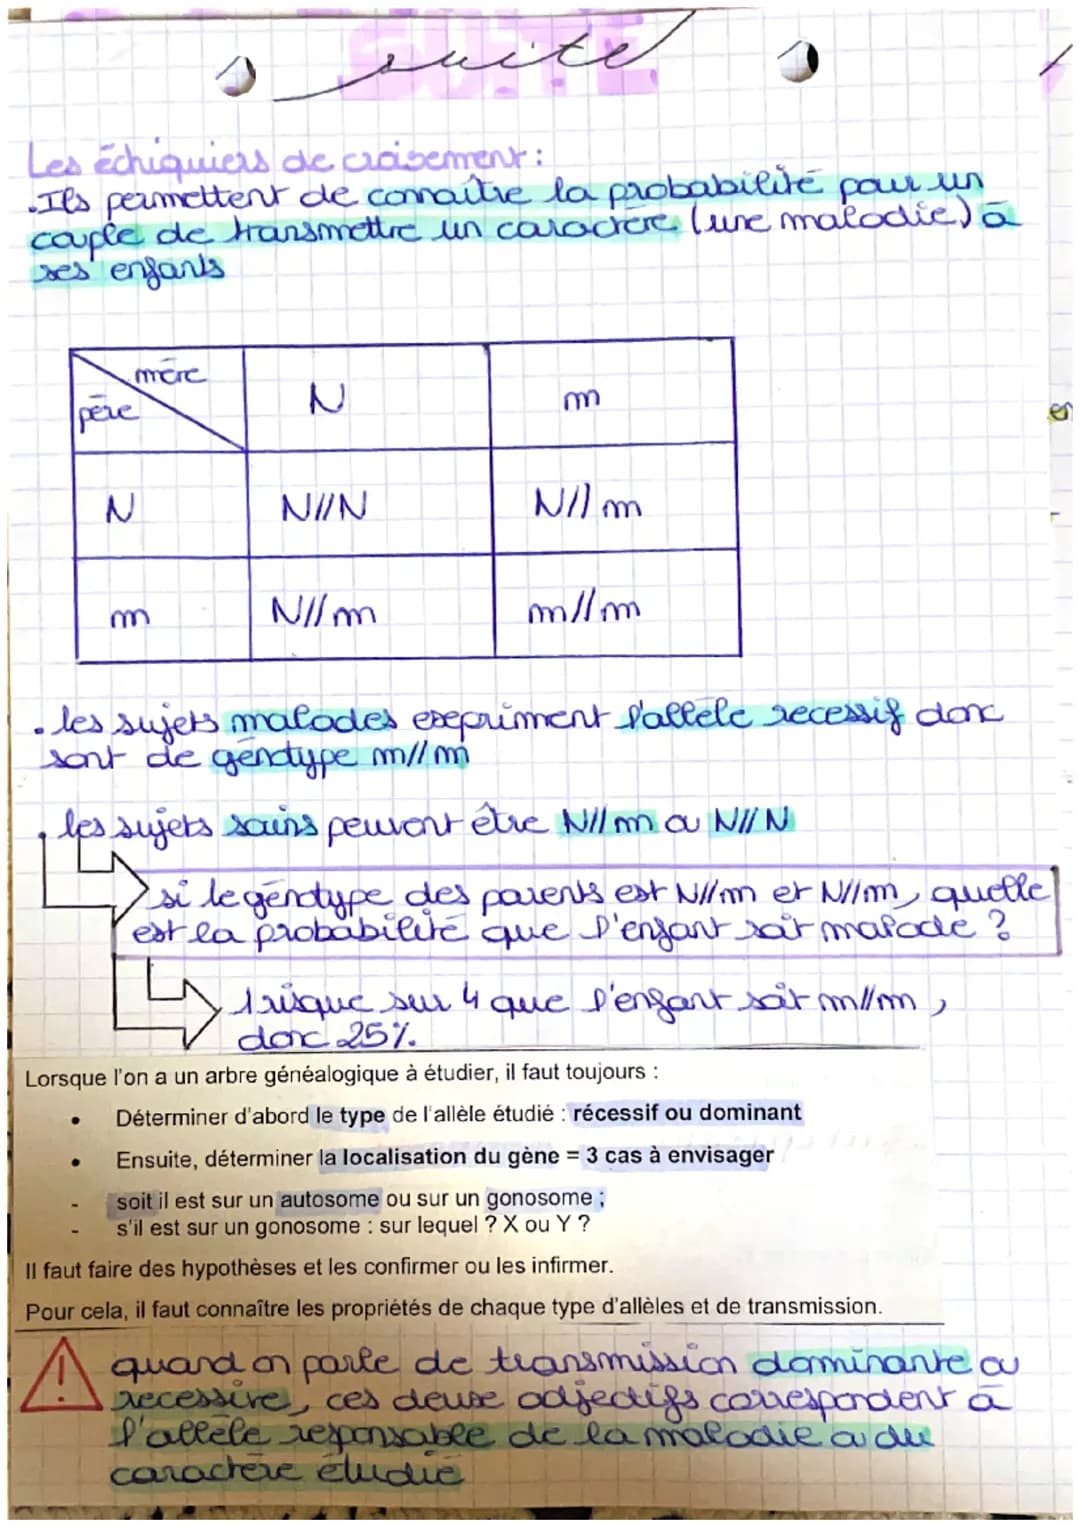 suite
Les échiquiers de croisement :
.Ils permettent de connaître la probabilité pour un
couple de transmettre un caractère (une maladie) à
ses enfants
mère
père
N
m
N
N//N
N//m
m
N//m
m//m
. les sujets malades exepriment l'allèle recessif donc
sont de génotype m//m
. les sujets sains peuvent être N//m ou N//N
si le génotype des parents est N//m et N//m, quelle
est la probabilité que l'enfant soit malade ?
1 risque sur 4 que l'enfant soit m//m,
donc 25%.
Lorsque l'on a un arbre généalogique à étudier, il faut toujours :
• Déterminer d'abord le type de l'allèle étudié : récessif ou dominant
• Ensuite, déterminer la localisation du gène = 3 cas à envisager
- soit il est sur un autosome ou sur un gonosome ;
- s'il est sur un gonosome : sur lequel ? X ou Y ?
Il faut faire des hypothèses et les confirmer ou les infirmer.
Pour cela, il faut connaître les propriétés de chaque type d'allèles et de transmission.
! quand on parle de transmission dominante ou
recessive, ces deux adjectifs correspondent à
l'allèle responsable de la maladie ou du
caractère étudié